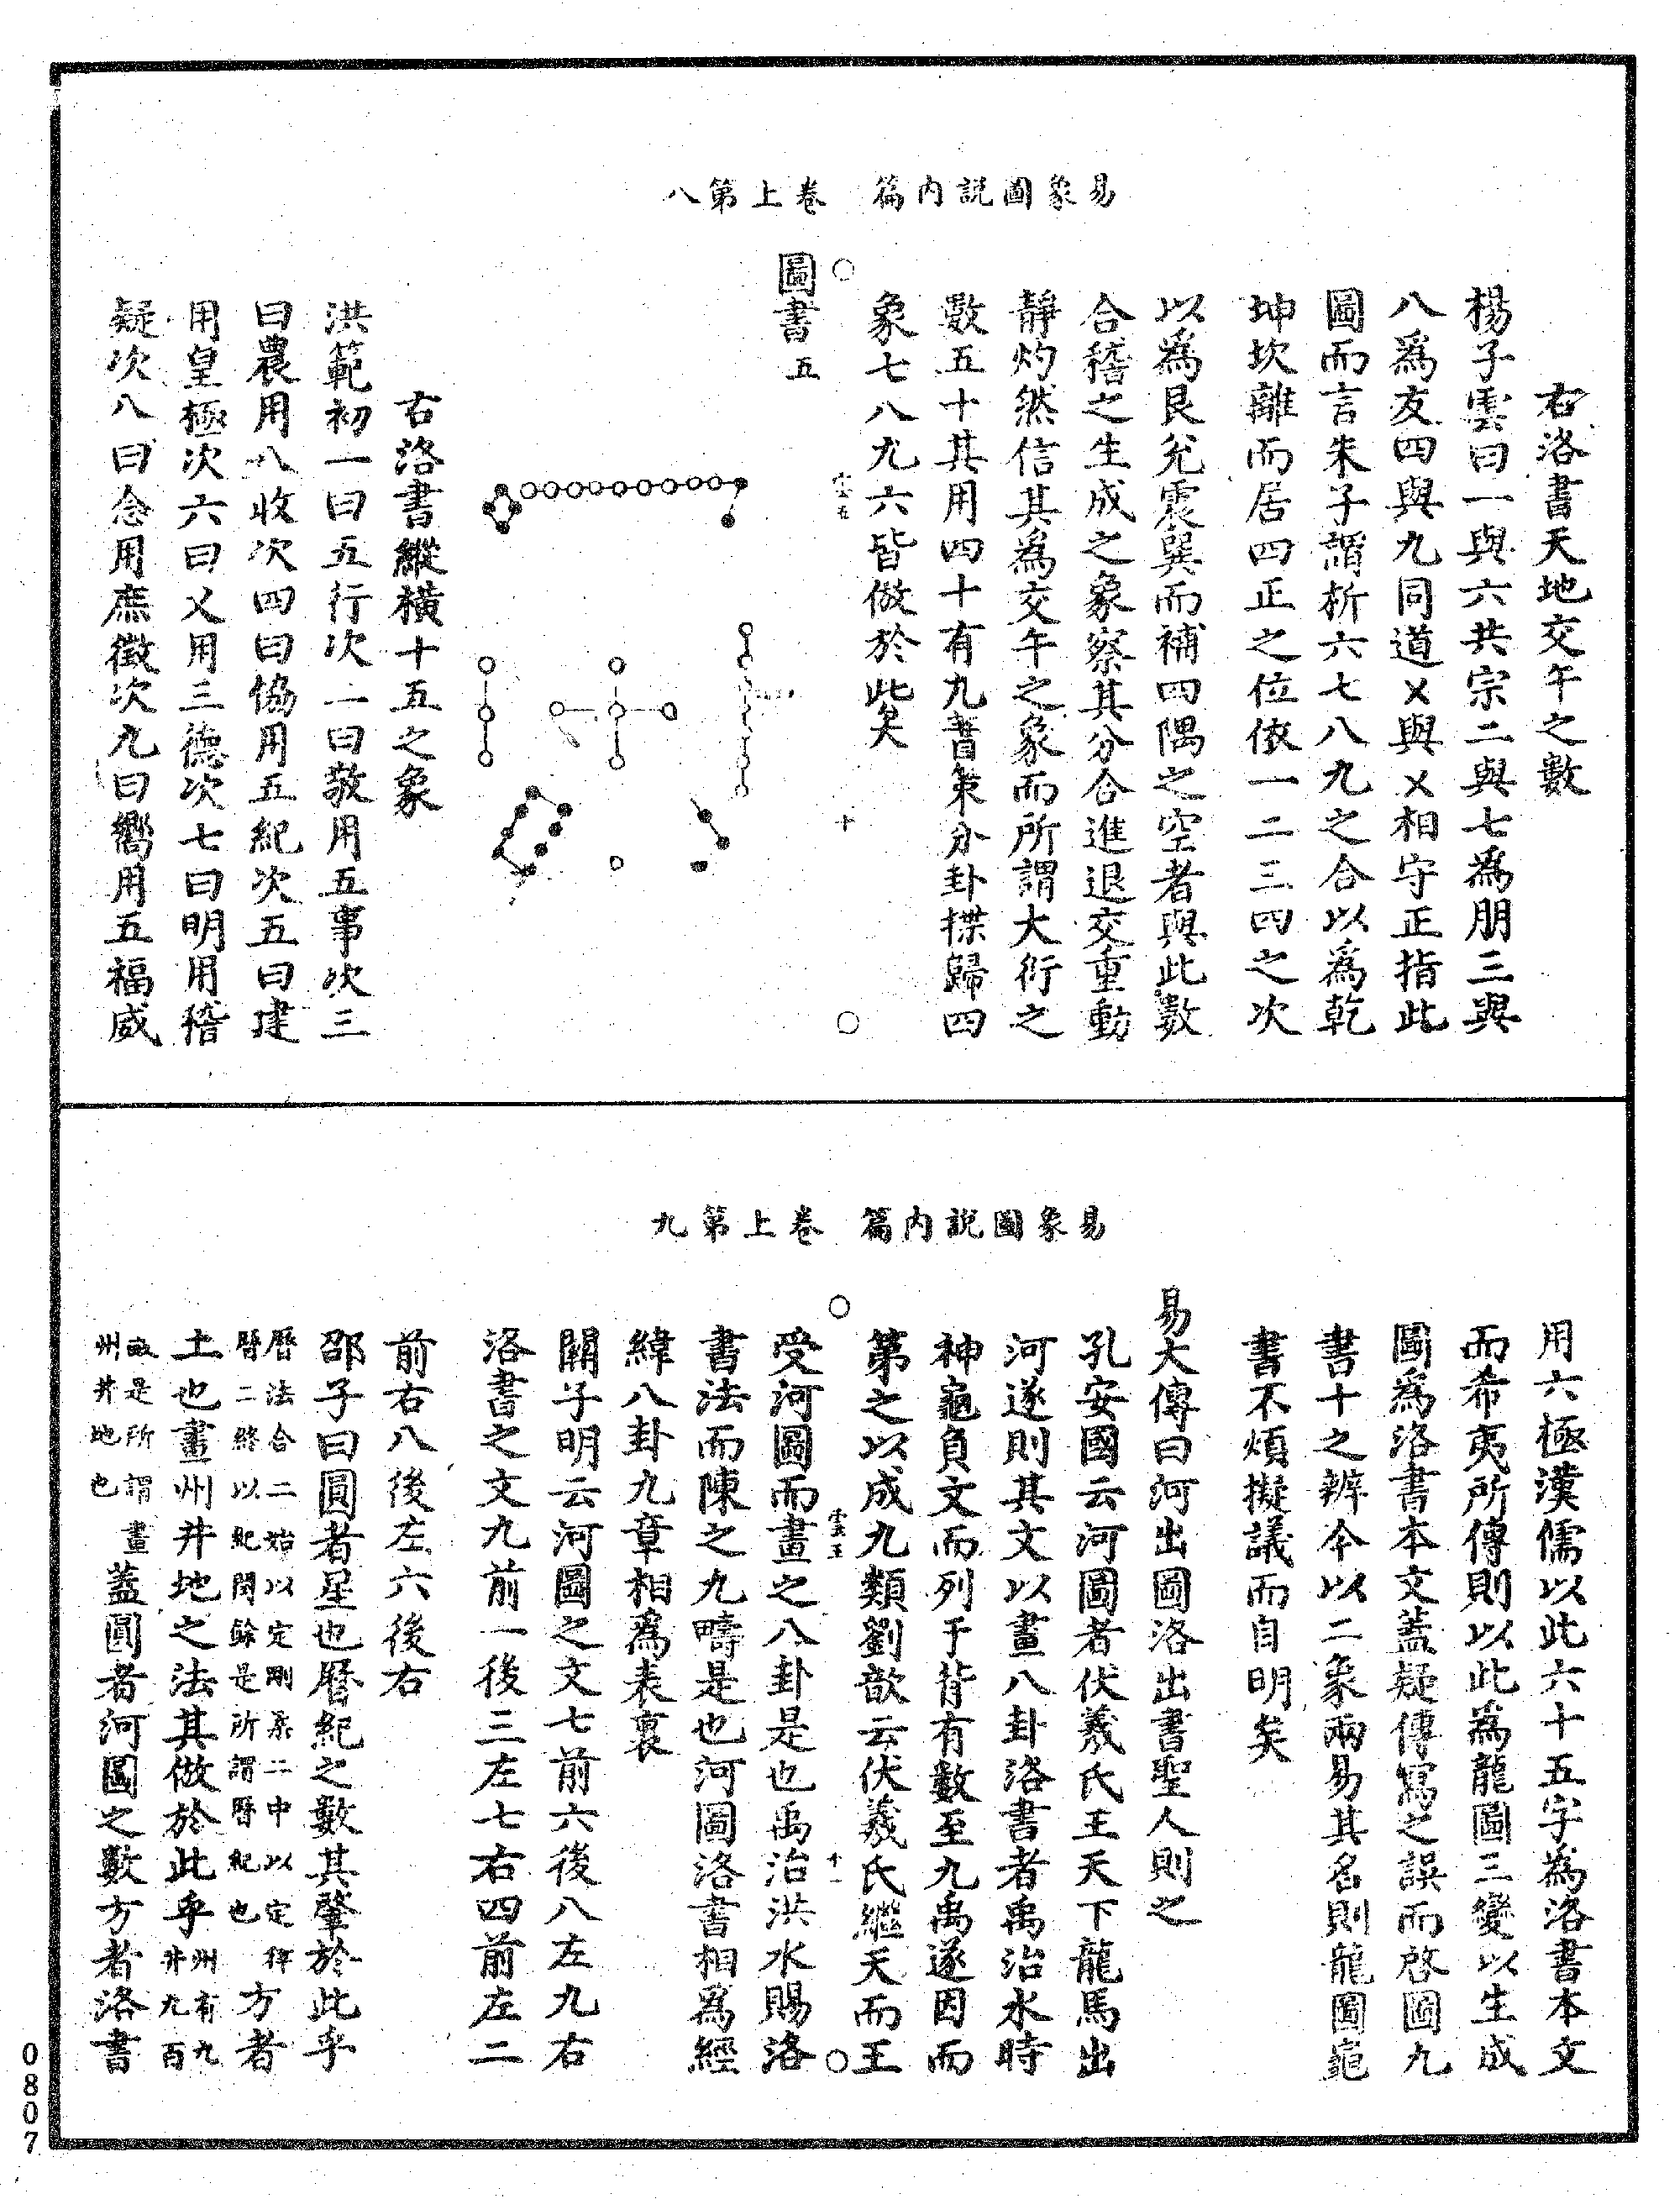 易象圖説内篇　卷上第八
右洛書天地交午之數
楊子雲曰一與六共宗二與七爲朋三與
八爲友四與九同道㐅與㐅相守正指此
圖而言朱子謂析六七八九之合以爲乾
坤坎離而居四正之位依一二三四之次
以爲艮兊震巽而補四隅之空者與此數
合稽之生成之象察其分合進退交重動
靜灼然信其爲交午之象而所謂大衍之
數五十其用四十有九蓍策分卦揲歸四
象七八九六皆倣於此矣
十
圖書五
右洛書縱横十五之象
洪範初一曰五行次二曰敬用五事次三
曰農用八收次四曰恊用五紀次五曰建
用皇極次六曰乂用三德次七曰明用稽
疑次八曰念用庶徵次九曰嚮用五福威
易象圖説内篇　卷上第九
用六極漢儒以此六十五字爲洛書本文
而希夷所傳則以此爲龍圖三變以生成
圖爲洛書本文蓋疑傳寫之誤而啓圖九
書十之辨今以二象兩易其名則龍圖龜
書不煩擬議而自明矣
易大傳曰河出圖洛出書聖人則之
孔安國云河圖者伏羲氏王天下龍馬出
河遂則其文以畫八卦洛書者禹治水時
神龜負文而列于背有數至九禹遂因而
第之以成九類劉歆云伏羲氏繼天而王
十一
受河圖而畫之八卦是也禹治洪水賜洛
書法而陳之九疇是也河圖洛書相爲經
緯八卦九章相爲表裏
關子明云河圖之文七前六後八左九右
洛書之文九前一後三左七右四前左二
前右八後左六後右
邵子曰圓者星也曆紀之數其肇於此乎
曆法合二始以定剛柔二中以定律
曆二終以紀閏餘是所謂曆紀也方者
土也畫州井地之法其倣於此乎州有九
井九百
畝是所謂畫
州井地也蓋圓者河圖之數方者洛書
0807